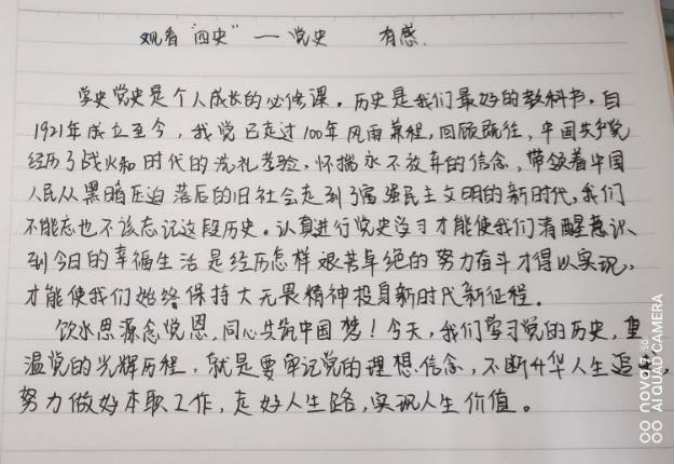 观看"四史"——党史 有感.
学史党史是个人成长的必修课。历史是我们最好的教科书,自
1921年成立至今,我党已走过100年风雨兼程,回顾既往,中国共产党
经历了战火和时代的洗礼考验,怀揣永不放弃的信念,带领着中国
人民从黑暗压迫落后的旧社会走到了富强民主文明的新时代,我们
不能忘也不该忘记这段历史。认真进行党史学习才能使我们清醒意识
到今日的幸福生活是经历怎样艰苦卓绝的努力奋斗才得以实现,
才能使我们始终保持大无畏精神投身新时代新征程。
饮水思源念党恩,同心共筑中国梦!今天,我们学习党的历史,重
温党的光辉历程,就是要牢记党的理想信念,不断升华人生追
努力做好本职工作,走好人生路,实现人生价值。
nova 7 SE
AI QUAD CAMERA